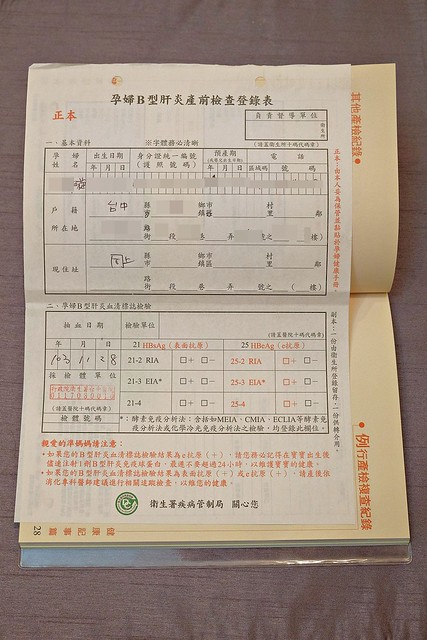 孕婦B型肝炎產前檢查登錄表
正本
負責督導單位
衛生所
(請蓋衛生所十碼代碼章)
一、基本資料 ※字體務必清晰
孕婦姓名
出生日期
年 月 日
身分證統一編號
(護照號碼)
預產期
年 月 日
電話
區域碼 號碼
戶籍所在地
台中 縣市 鄉鎮 市區 村里 鄰
路街 段 巷 弄 號之 (樓)
現住址
同上 縣市 鄉鎮 市區 村里 鄰
路街 段 巷 弄 號之 (樓)
二、孕婦B型肝炎血清標誌檢驗
抽血日期
檢驗單位
(請蓋醫院十碼代碼章)
年 月 日
21 HBsAg (表面抗原)
25 HBeAg (e抗原)
103 11 28
21-2 RIA □+ □−
25-2 RIA □+ □−
採檢體單位
21-3 EIA* □+ □−
25-3 EIA* □+ □−
(請蓋醫院十碼代碼章)
21-4 □+ □−
25-4 □+ □−
檢體號碼
*：酵素免疫分析法：包括如MEIA、CMIA、ECLIA等酵素免
疫分析法或化學冷光免疫分析法之檢驗，均登錄此欄位。
親愛的準媽媽請注意：
•如果您的B型肝炎血清標誌檢驗結果為e抗原(+)，請您務必記得在寶寶出生後
儘速注射1劑B型肝炎免疫球蛋白，最遲不要超過24小時，以維護寶寶的健康。
•如果您的B型肝炎血清標誌檢驗結果為表面抗原(+)或e抗原(+)，請產後依
消化專科醫師建議進行相關追蹤檢查，以維您的健康。
衛生署疾病管制局 關心您
正本：由本人妥為保管並黏貼於孕婦健康手冊。
副本：一份由衛生所登錄留存，一份供轉介用。
其他產檢紀錄
例行產檢複查紀錄
健康記事篇
28